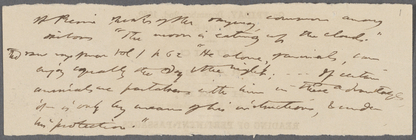 thinks of the saying, common among
sailors "The moon is eating up the clouds."
vol 1 p 62 "He alone, of animals, can
enjoy equally the day & the night; ... If certain
animals are partakers with him in these advantages
it is only by means of his instruction, & under
his protection."